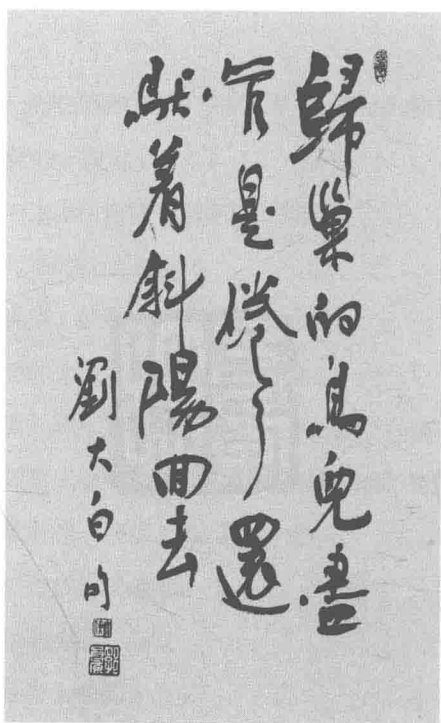 歸巢的鳥兒盡
管是倦了還
馱着斜陽回去
劉大白句